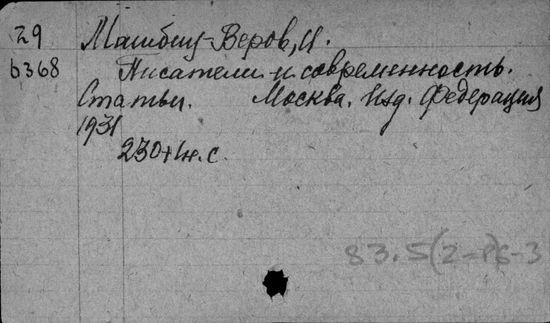 29 Машбиц-Веров, И.
6368 Писатели и современность.
Статьи. Москва. Изд. Федерация
1931
230+1н.с.
83.5(2=Р)6-3